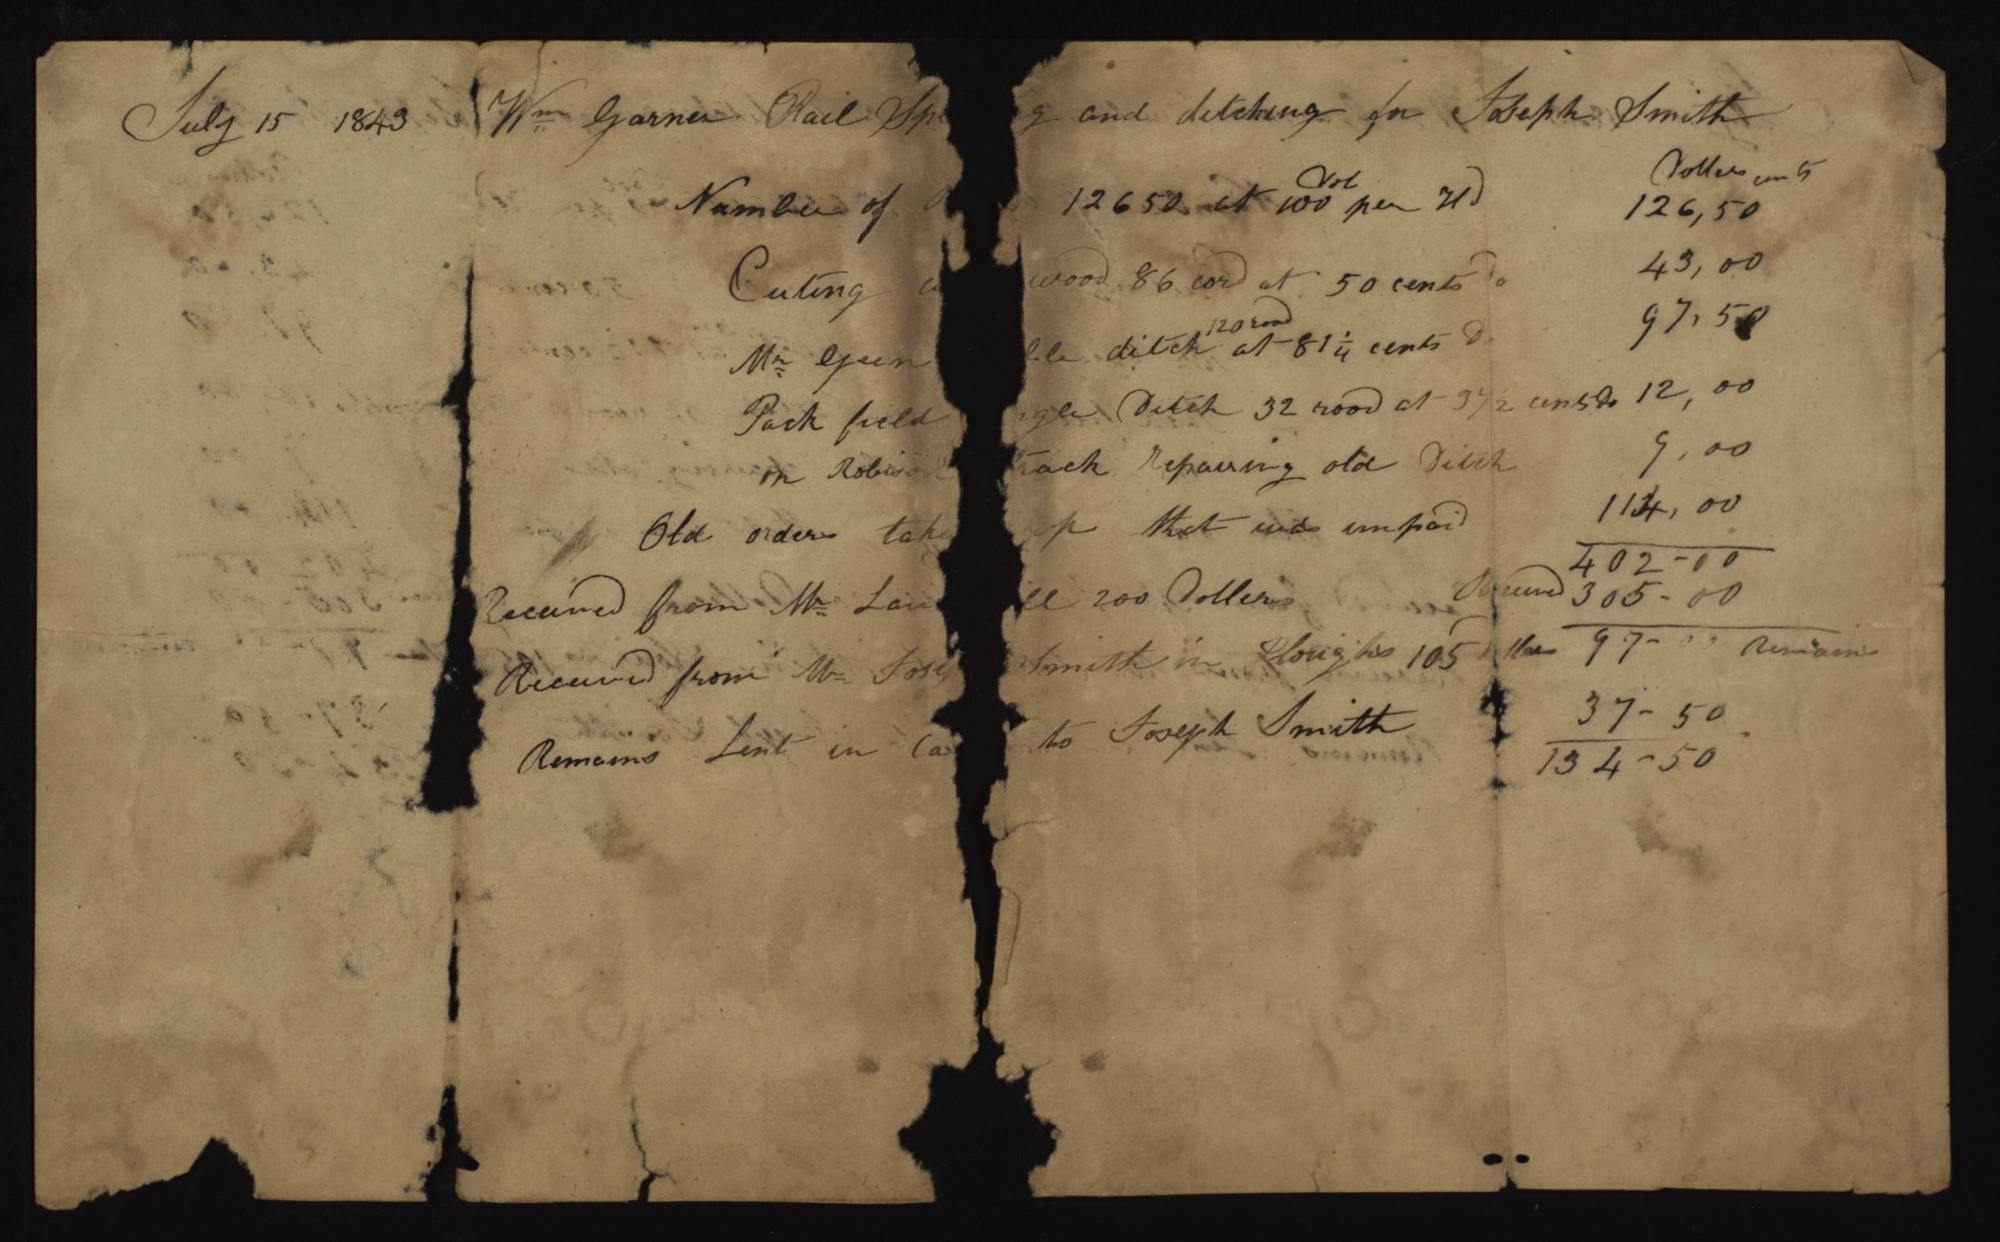 July 15 1843 Wm Garner Rail Sp g and ditching for Joseph Smith
Dollers cents
Dol
Number of 12650 at 100 per Hd 126,50
Cuting wood 86 cord at 50 cents Do 43,00
120 rood
Mr Green ble ditch at 81 1/4 cents D 97,50
Pack field ngle Ditch 32 rood at 37 1/2 cents Do 12,00
on Robiso track repairing old Ditch 9,00
Old orders take up that was unpaid 114,00
402-00
Received from Mr Law ll 200 Dollers Received 305-00
Received from Mr Jose Smith in Ploughs 105 97-00 Remains
37-50
Remains Lent in Ca to Joseph Smith
134-50